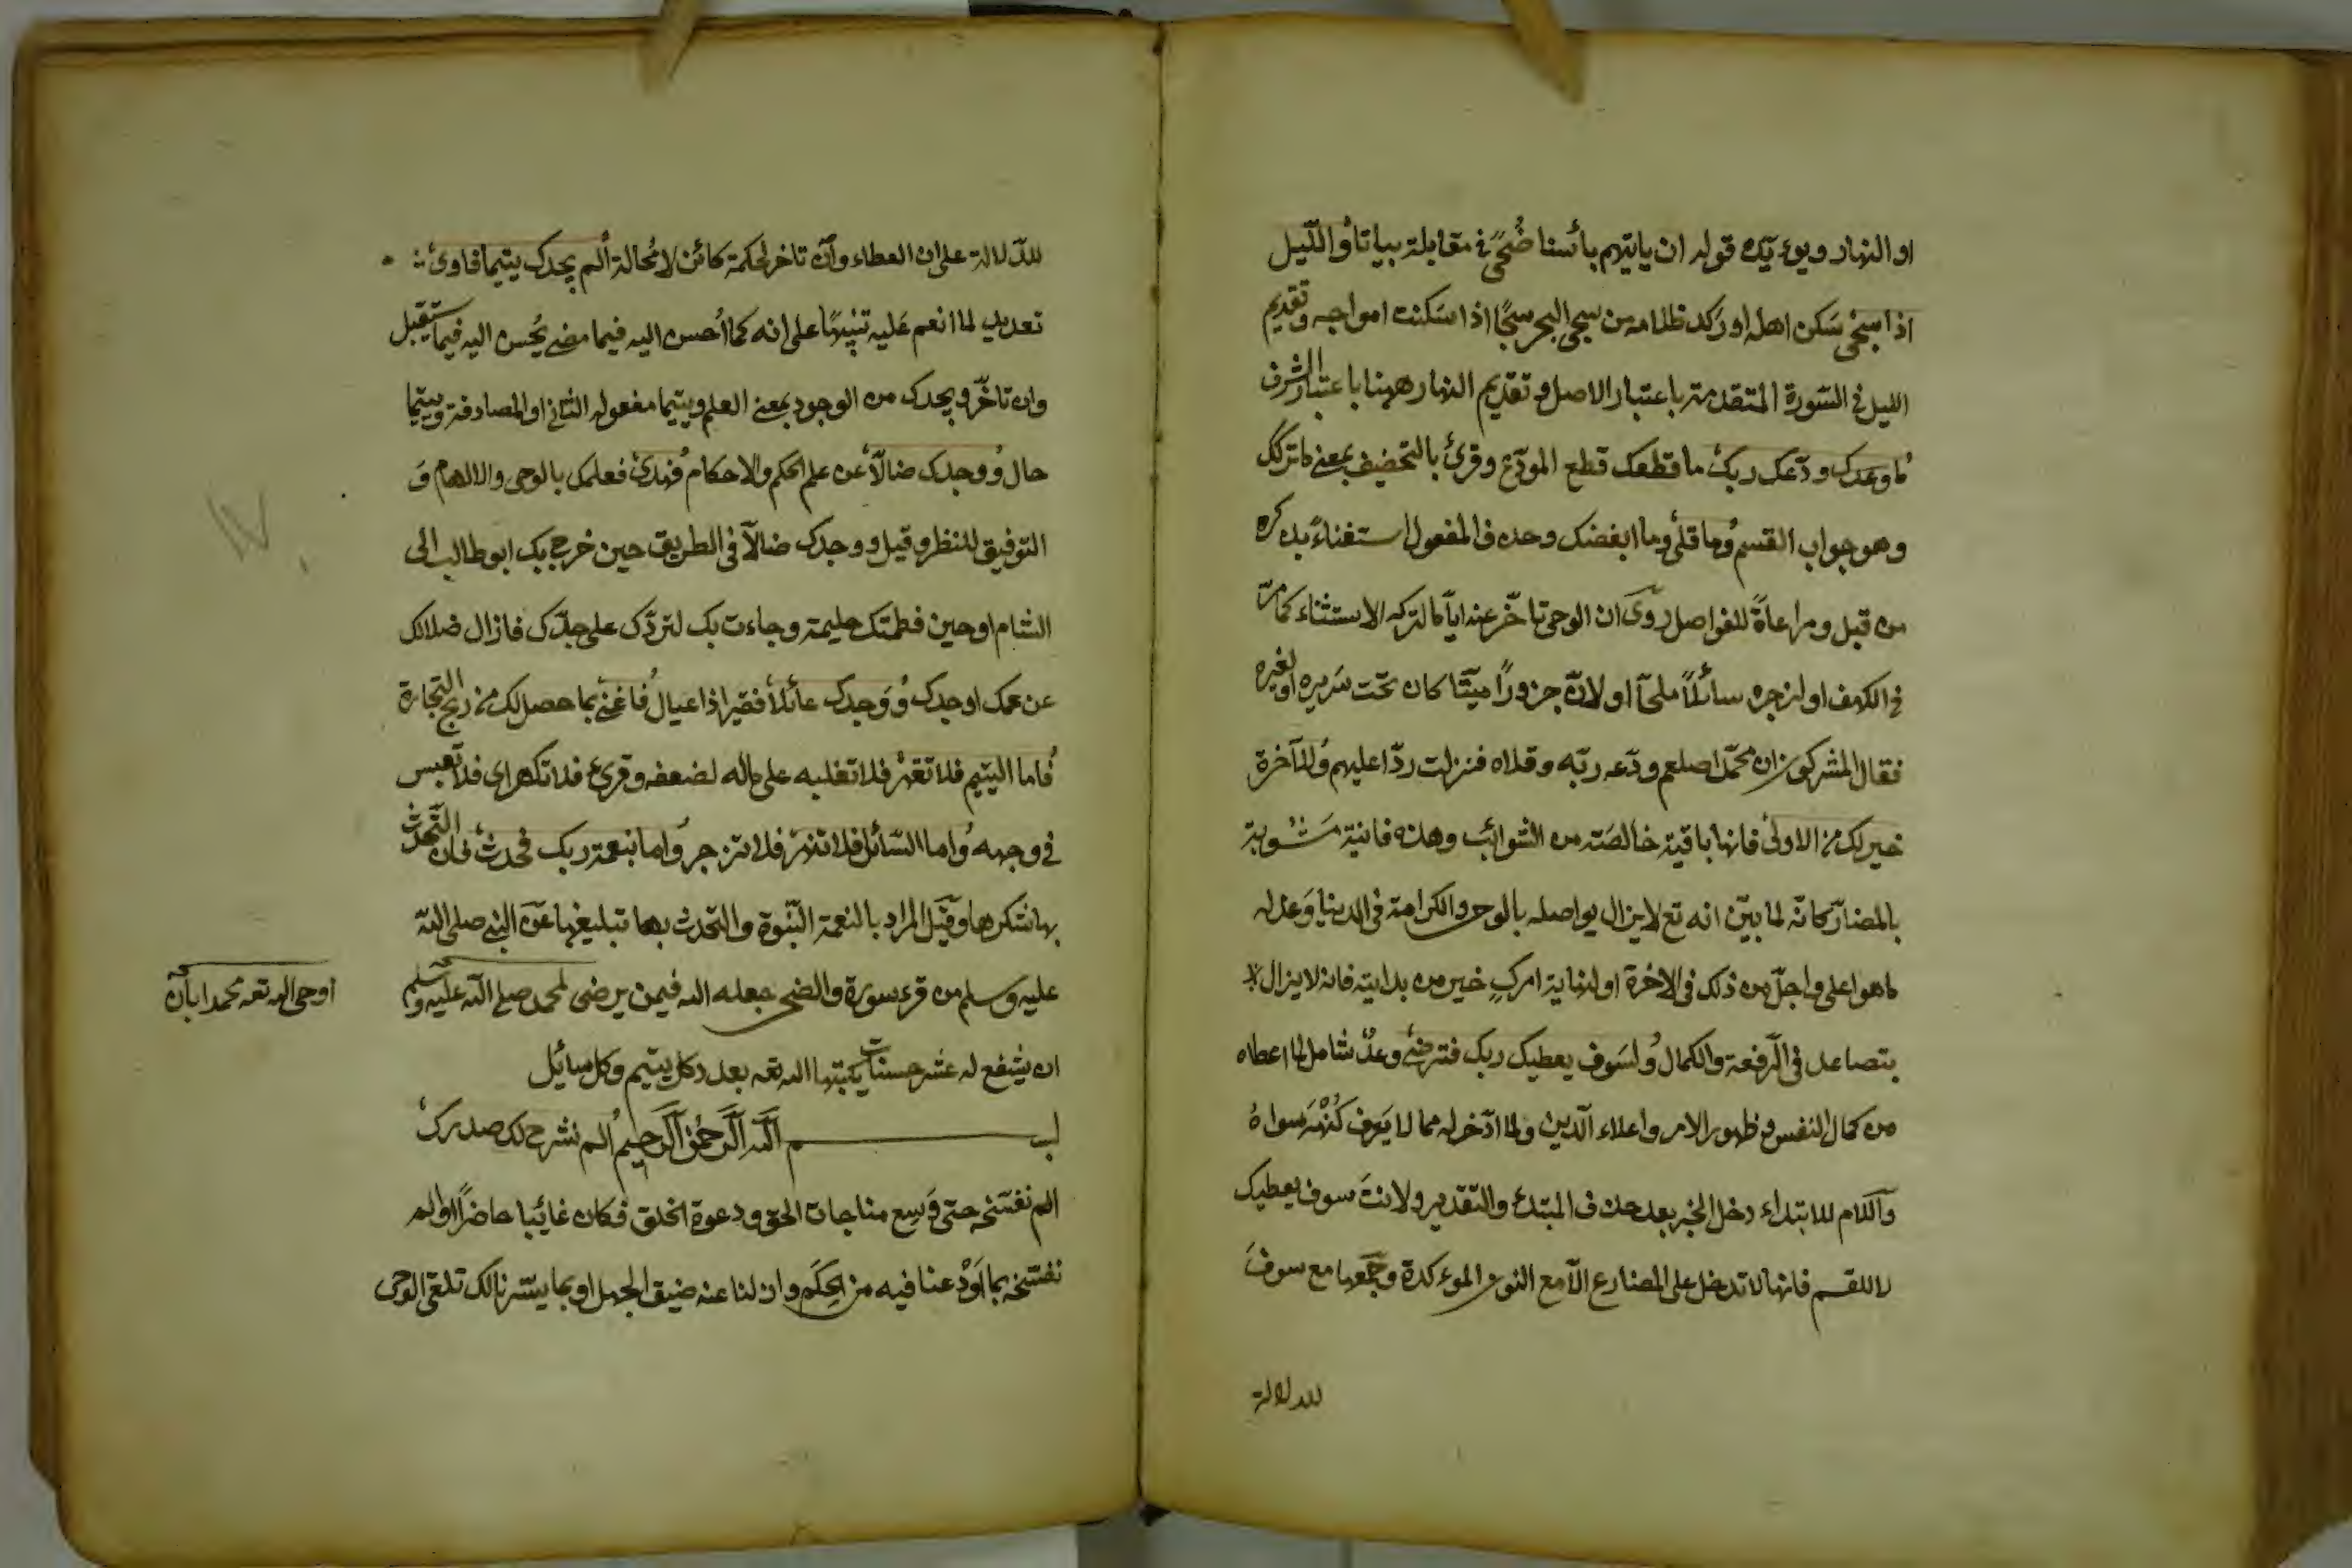 او النهار ويؤيده قوله ان ياتيهم بأسنا ضُحًى في مقابلة بياتا والّليل
اذا سجى سَكن اهله او رَكد ظلامه من سجى البحر سجًا اذا سَكنت امواجه وتقديم
الليل في السّورة المتقدمة باعتبار الاصل وتقديم النهار ههنا باعتبار الشرف
ما ودعك ربك ما قطعك قطع المودّع وقرئ بالتخفيف بمعنى ما تركك
وهو جواب القسم وما قلى وما ابغضك وحذف المفعول استغناءً بذكره
من قبل ومراعاةً للفواصل روى ان الوحي تاخّر عنه ايّاما لتركه الاستثناء كما مرّ
في الكهف او لزجره سائلاً ملحّا او لانّ جروًا ميّتا كان تحت سَريره او لغيره
فقال المشركون ان محمّدا صلعم ودّعه ربّه وقلاه فنزلت ردّا عليهم وللآخرة
خير لك من الاولى فانها باقية خالصَة من الشوائب وهذه فانية مَشُوبة
بالمضارّ كانّه لما بيّن انه تع لا يزال يواصله بالوحى والكرامة في الدنيا وَعد له
ما هو اعلى واجلّ من ذلك في الاخرة او لنهاية امرك خير من بدايته فانه لا يزال
يتصاعد في الرّفعة والكمال ولسَوف يعطيك ربك فترضى وعدٌ شامل لما اعطاه
من كمال النفس وظهور الامر واعلاء الّدين ولما ادّخر له مما لا يَعرف كُنْهَه سواهُ
والّلام للابتداء دخل الخبر بعد حذف المبتدء والتّقدير ولانتَ سوف يعطيك
لا للقسم فانها لا تدخل على المضارع الّا مع النون المؤكدة وجَمعها مع سوفَ
للدلالة
للدّلالة على ان العطاء وان تاخر لحكمة كائن لا مُحالة ألم يجدك يتيما فاوى
تعديد لما انعم عَليه تنبيهًا على انه كما احُسن اليه فيما مضى يُحسن اليه فيما يستقبل
وان تاخّر ويجدك من الوجود بمعنى العلم ويتيما مفعوله الثاني او المصادفة ويتيما
حال ووجدك ضالّا عن علم الحكم والاحكام فهدى فعلمك بالوحى والالهام وَ
التوفيق للنظر وقيل ووجدك ضالاّ في الطريق حين خرج بك ابو طالب الى
الشام او حين فطمتك حليمة وجاءت بك لتردّك على جدّك فازال ضلالك
عن عمك او جدك ووَجدك عائلا فقيرا ذا عيال فاغنى بما حصل لك من ربح التجارة
فاما اليتيم فلا تقهرْ فلا تغلبه على ماله لضعفه وقرئ فلا تكهر اى فلا تعبس
في وجهه واما السّائل فلا تنهرْ فلا تزجر واما بنعمة ربك فحدث فان التّحدث
بها شكرها وقيَل المراد بالنعمة النّبُوة والتحدث بها تبليغها عَن النبى صلى اللّه
عليه وسلم من قرء سورة والضحى جعله الله فيمن يرضى لمحمد صلى اللّه عليه وسلم
ان يشفع له عشر حسنات يكتبها الله تعه بعدد كل يتيم وكل سائل
بسم اللّه الرّحمن الرّحيم ألم نشرح لك صدرك
الم نفسحه حتى وَسِع مناجات الحق ودعوة الخلق فكان غائبا حاضرًا او الم
نفسحه بما اَوْدعنا فيه من الحِكَم وازلنا عنه ضيق الجهل او بما يسّرنا لك تلقى الوحى
اوحى الله تعه محمدا بان